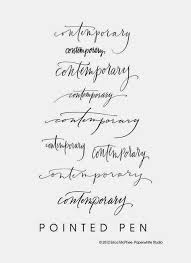 contemporary
contemporary.
contemporary
contemporary
contemporary
contemporary
contemporary contemporary
contemporary
contemporary
POINTED PEN
© 2012 Erica McPhee, Paperwhite Studio